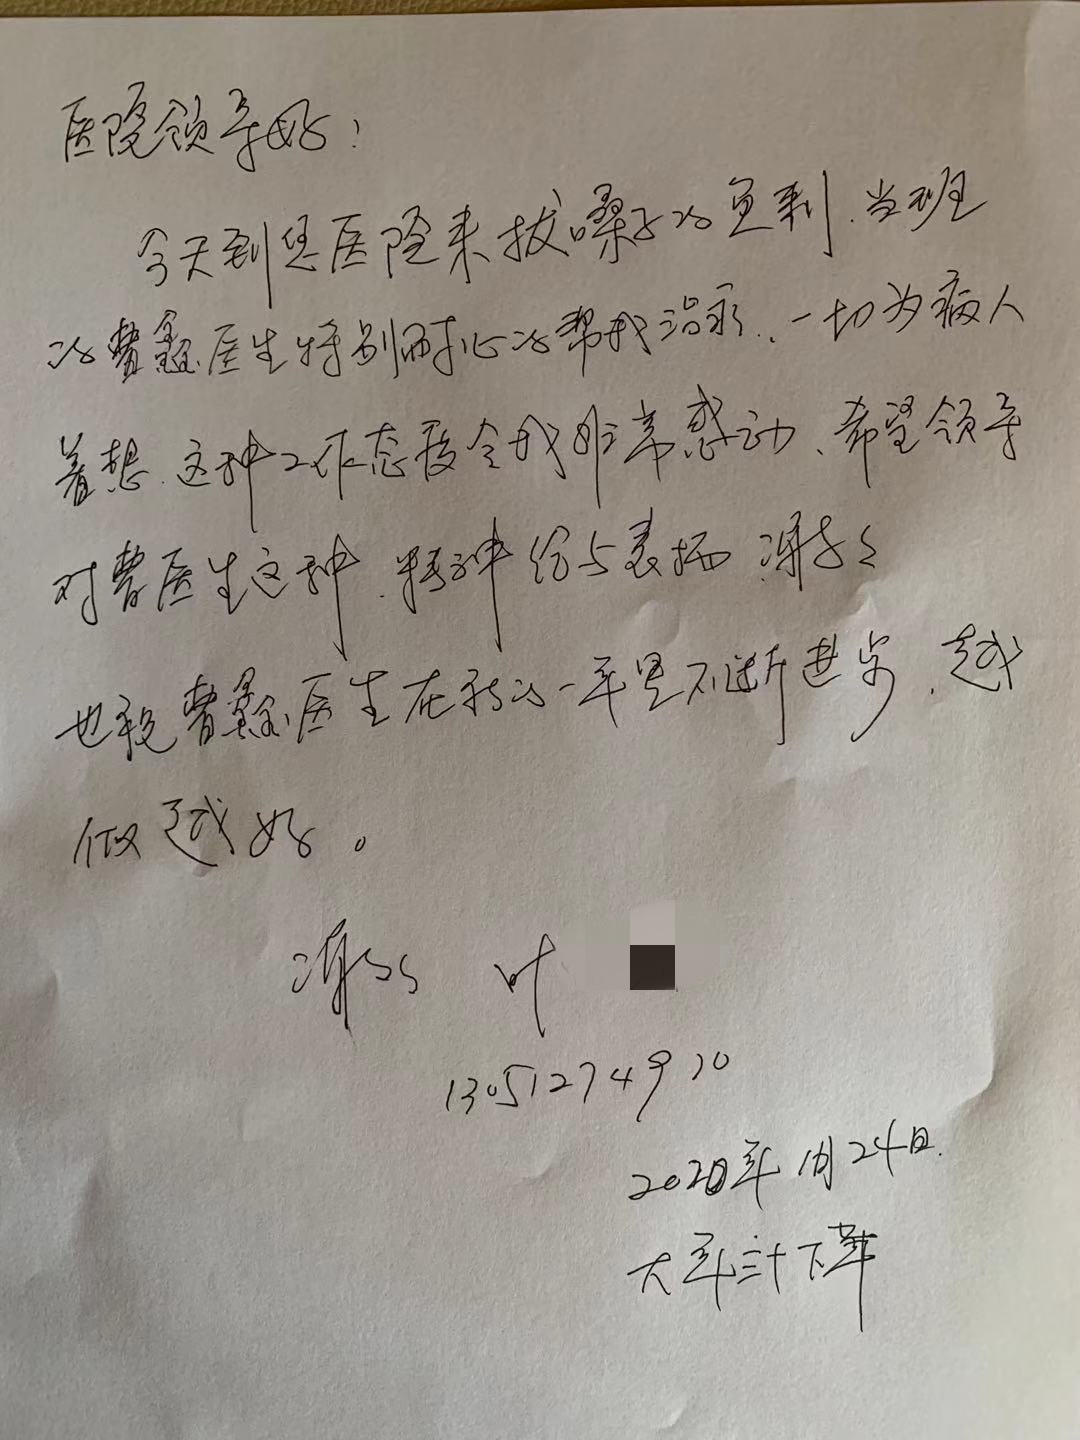 医院领导好！
今天到您医院来拔嗓子的鱼刺，当班
的费鑫医生特别耐心的帮我治疗，一切为病人
着想，这种工作态度令我非常感动，希望领导
对费医生这种精神给与表扬，谢谢
也祝费鑫医生在新的一年里不断进步，越
做越好。
谢谢 叶
13051274910
2020年1月24日
大年三十下午